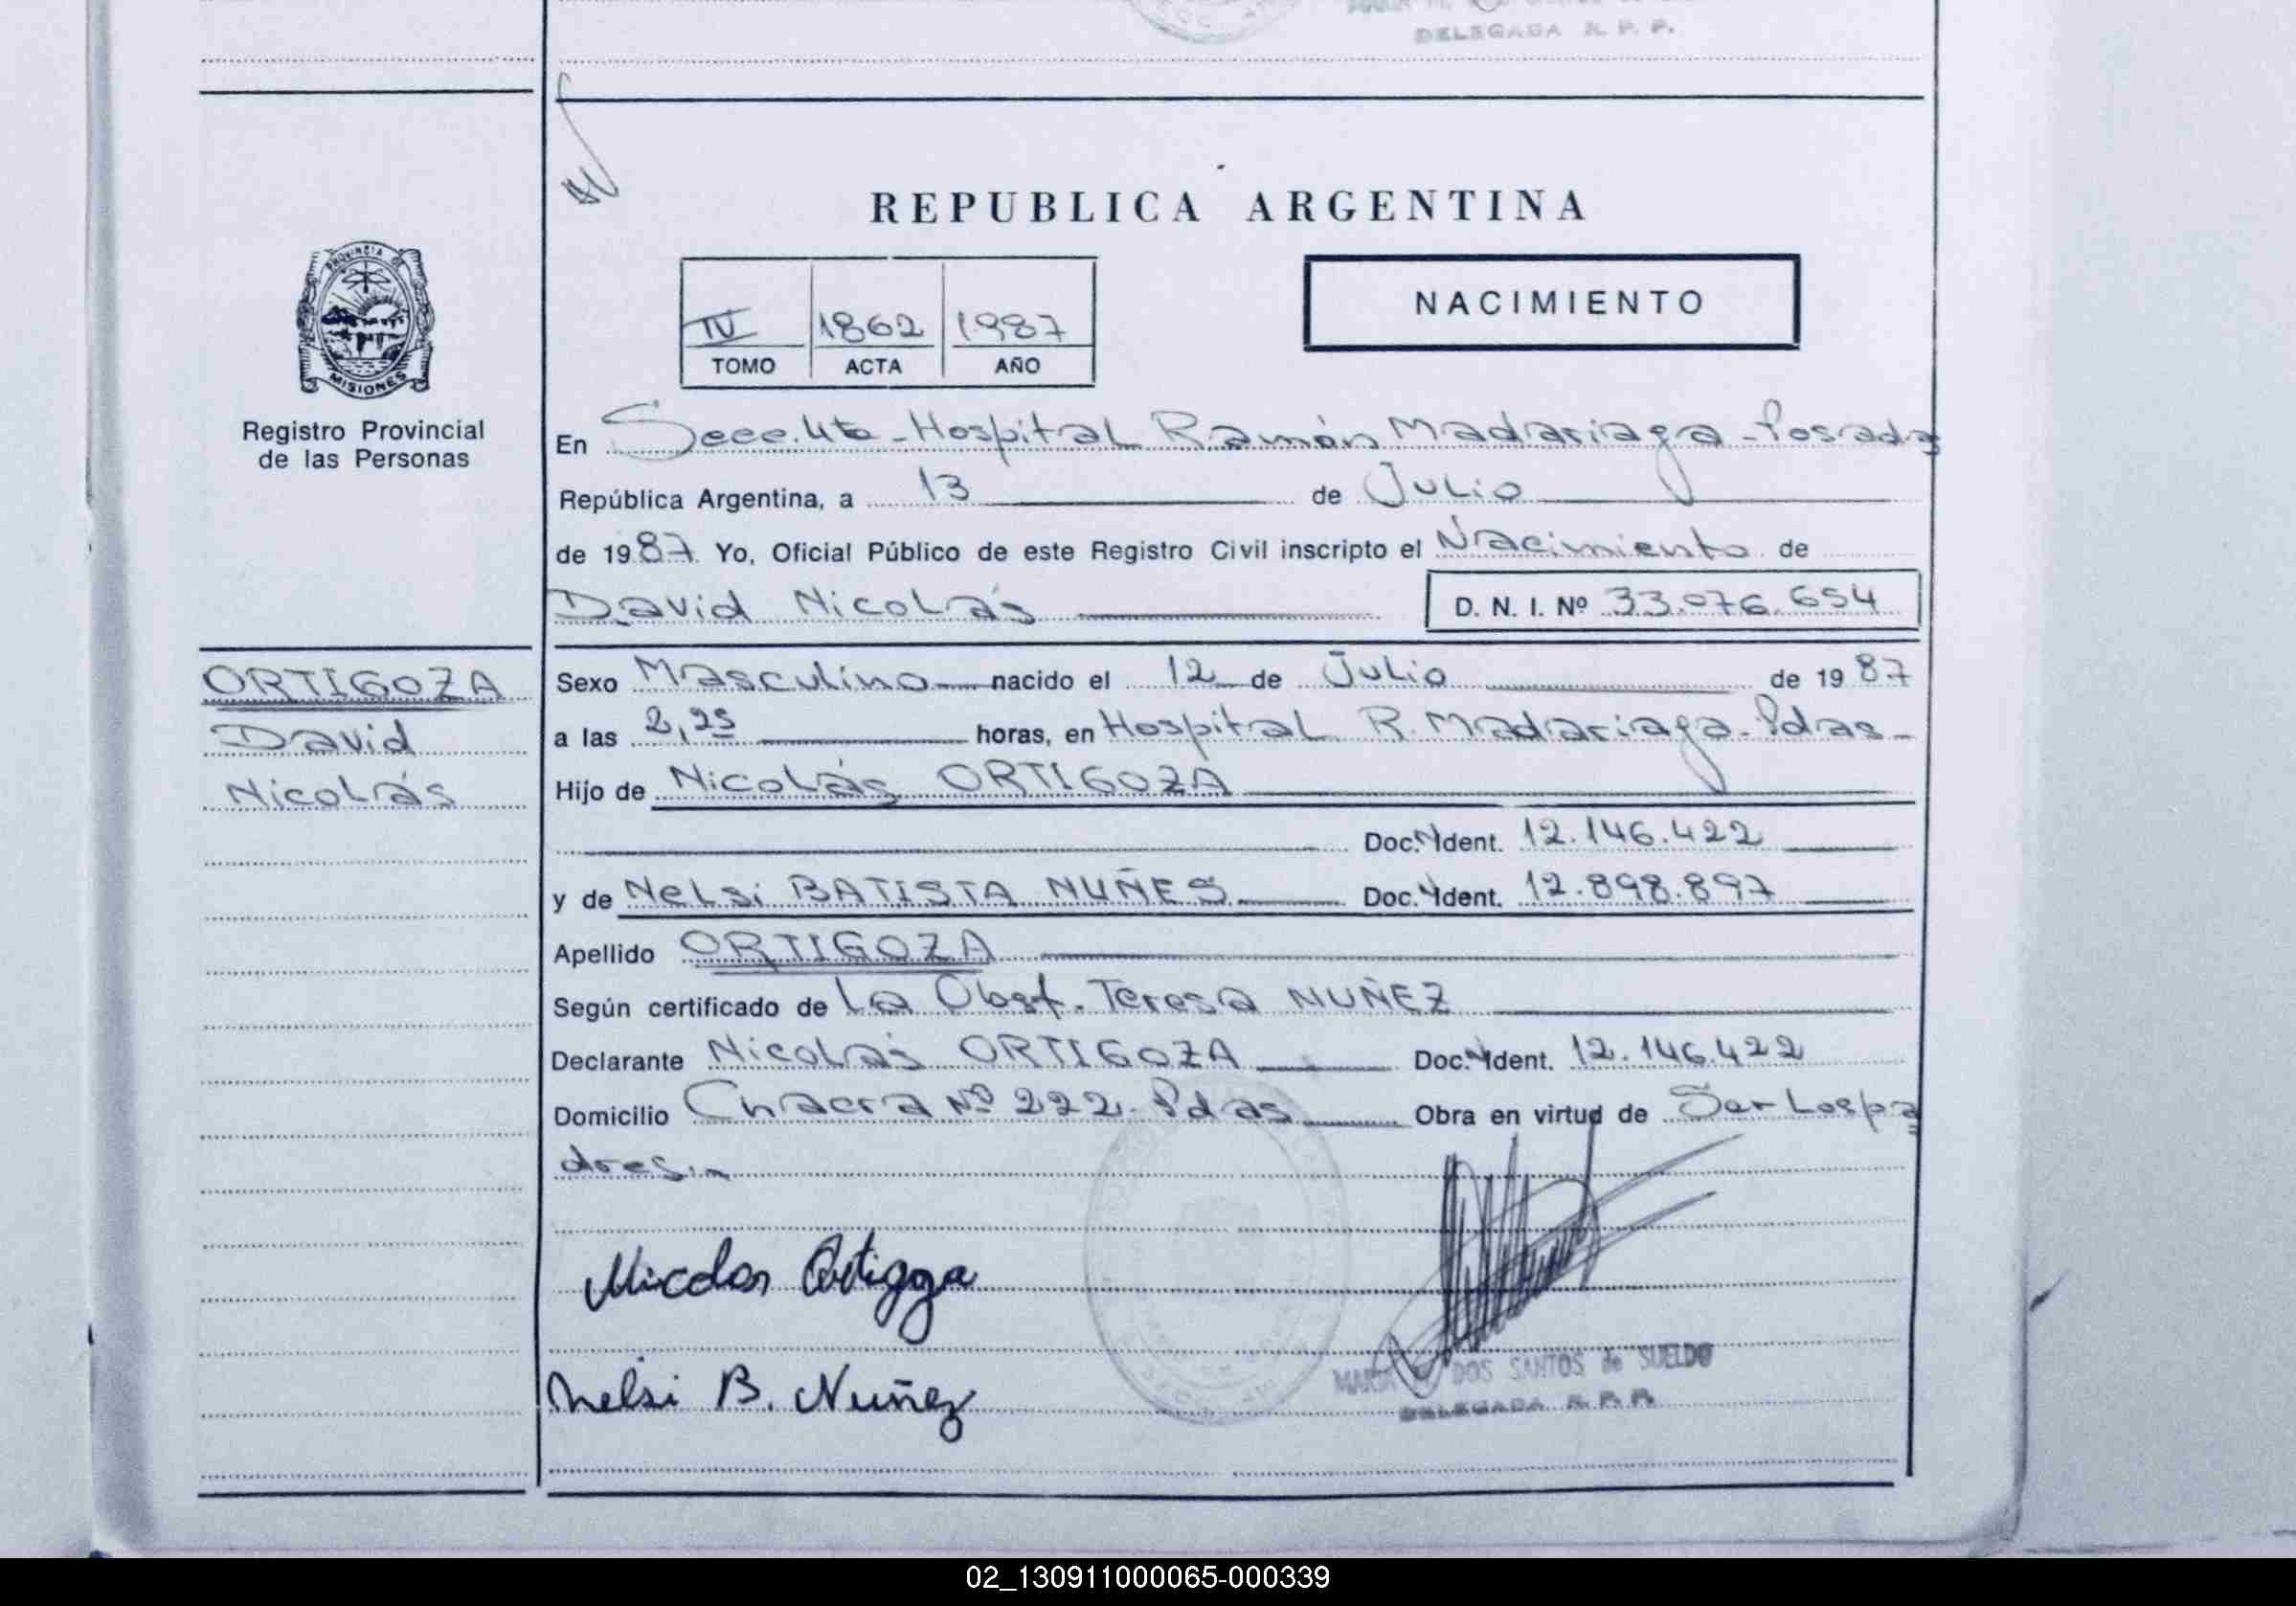 DELEGADA R. P. P.
REPUBLICA ARGENTINA
PROVINCIA DE
MISIONES
Registro Provincial
de las Personas
IV 1862 1987
TOMO ACTA AÑO
NACIMIENTO
En Secc. 4ta - Hospital Ramón Madariaga - Posadas
República Argentina, a 13 de Julio
de 1987 Yo, Oficial Público de este Registro Civil inscripto el Nacimiento de
David Nicolás D. N. I. Nº 33.076.654
ORTIGOZA
David
Nicolás
Sexo Masculino nacido el 12 de Julio de 1987
a las 2,25 horas, en Hospital R. Madariaga - Pdas -
Hijo de Nicolás ORTIGOZA
Doc. Ident. 12.146.422
y de Nelsi BATISTA NUÑES Doc. Ident. 12.898.897
Apellido ORTIGOZA
Según certificado de La Obst. Teresa NUÑEZ
Declarante Nicolás ORTIGOZA Doc. Ident. 12.146.422
Domicilio Chacra Nº 222 - Pdas Obra en virtud de Ser los pa
dres.-
Nicolas Ortigoza
Nelsi B. Nuñez
MARIA DOS SANTOS de SUELDO
DELEGADA R. P. P.
02_130911000065-000339